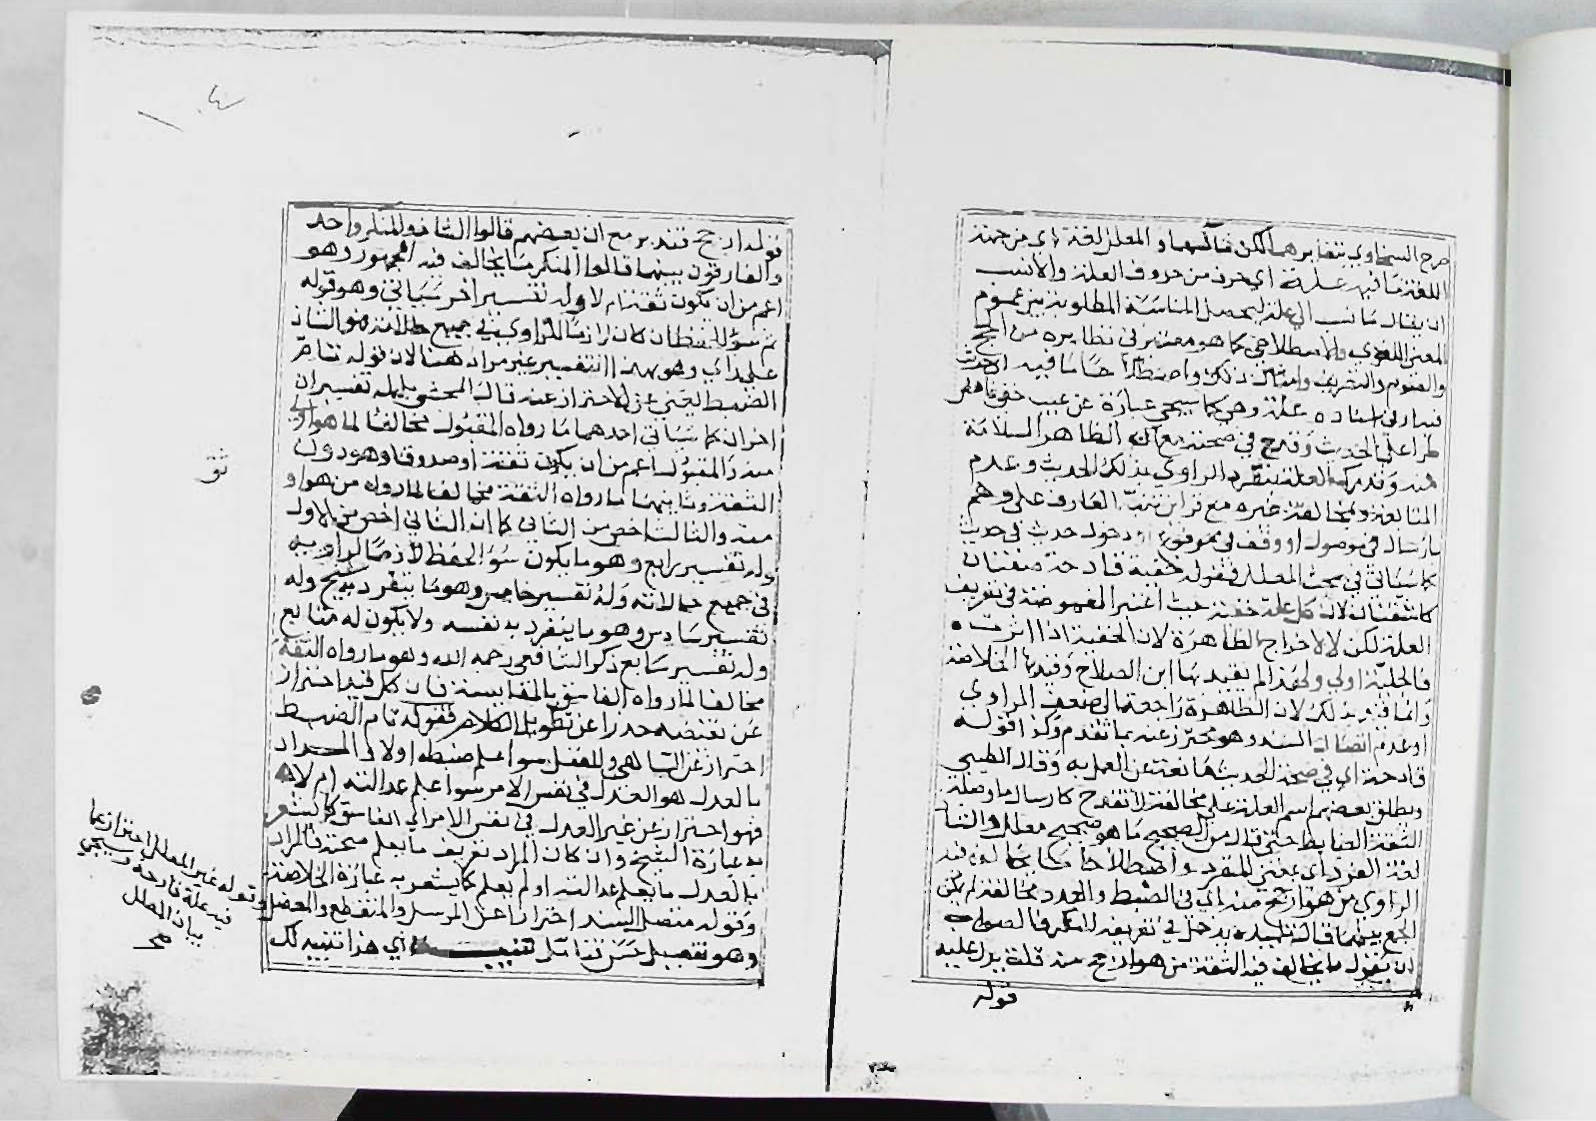 صرح السخاوي بتغايرهما لكن قالهما و المعلل لغة اي من جهة
اللغة ما فيه علة اي حرف من حروف العلة والانسب
ان يقال ما نسب الى علة ليحصل المناسبة المطلوبة بين عموم
المعنى اللغوي والاصطلاحي كما هو معتبر في نظايره من الحج
والصوم والتعريف وامثال ذلك واصطلاحا ما فيه اي حديث
في اسناده علة وهي كما سيجي عبارة عن عيب خفي غامض
طرا على الحديث وقدح في صحته مع ان الظاهر السلامة
منه وقد يدرك العلة بتفرد الراوي بذلك الحديث وعدم
المتابعة و بمخالفة غيره مع قراين تنبه العارف على وهم
بارسال في موصول او وقف في مرفوع او دخول حديث في حديث
كما سياتي في بحث المعلل فقوله خفية قادحة صفتان
كاشفتان لان كل علة خفية حيث اعتبر الغموضة في تعريف
العلة لكن لا لاخراج الظاهرة لان الخفية اذا اثرت
فالجلية اولى ولهذا لم يقيدها ابن الصلاح وقيدها الخلاصة
وانما قيد بذلك لان الظاهرة راجعة الى ضعف الراوي
او عدم اتصال السند وهو محترز عنه بما تقدم وكذا قوله
قادحة اي في صحة الحديث مانعة عن العمل به وقال الطيبي
ويطلق بعضهم اسم العلة على مخالفة لا تقدح كارسال ما وصله
الثقة الضابط حتى قال من الصحيح ما هو صحيح معلل والشاذ
لغة الفرد اي بمعنى المنفرد واصطلاحا ما يخالف فيه
الراوي من هو ارجح منه اي في الضبط والعدد مخالفة لم يمكن
الجمع بينهما قال تلميذه يدخل في تعريفه المنكر فالصواب
ان يقول ما يخالف فيه الثقة من هو ارجح منه قلت يدل عليه
قوله
قوله ارجح فتدبر مع ان بعضهم قالوا الشاذ والمنكر واحد
والفارقون بينهما قالوا المنكر ما يخالف فيه الجمهور وهو
اعم من ان يكون ثقة ام لا وله تفسير اخر سياتي وهو قوله
ثم سوء الحفظ ان كان لازما للراوي في جميع حالاته فهو الشاذ
على راي وهو بهذا التفسير غير مراد هنا لان قوله تام
الضبط يغني عن الاحتراز عنه قال المحشي بل له تفسيران
اخران كما سياتي احدهما ما رواه المقبول مخالفا لما هو اولى
منه والمقبول اعم من ان يكون ثقة او صدوقا وهو دون
الثقة وثانيهما ما رواه الثقة مخالفا لما رواه من هو او
منه والثالث اخص من الثاني كما ان الثاني اخص من الاول
وله تفسير رابع وهو ما يكون سوء الحفظ لازما لراويه
في جميع حالاته وله تفسير خامس وهو ما يتفرد به شيخ وله
تفسير سادس وهو ما يتفرد به نفسه ولا يكون له متابع
وله تفسير سابع ذكر الشافعي رحمه الله وهو ما رواه الثقة
مخالفا لما رواه الفاسق بالمقايسة فان كل قيد احتراز
عن نقيضه حذرا عن تطويل الكلام فقوله تام الضبط
احتراز عن الساهي والمغفل سوا علم ضبطه اولا و المراد
بالعدل هو العدل في نفس الامر سوا علم عدالته ام لا
فهو احتراز عن غير العدل في نفس الامر اي الفاسق كما يشعر
به عبارة الشيخ وان كان المراد تعريف ما يعلم صحته فالمراد
بالعدل ما يعلم عدالته او لم يعلم كما يشعر به عبارة الخلاصة
وقوله متصل السند احترازا عن المرسل والمنقطع والمعضل
وهو تفصيل حسن تنبيه اي هذا تنبيه لك
وقوله غير المعلل احتراز عما
فيه علة قادحة وسيجي
بيان المعلل
صح